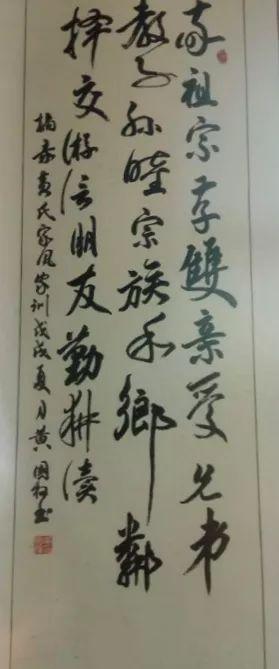 奉祖宗孝雙亲爱兄弟
教子孙睦宗族和鄉鄰
择交游信朋友勤耕读
黄氏家风家训戊戌夏月黄国书